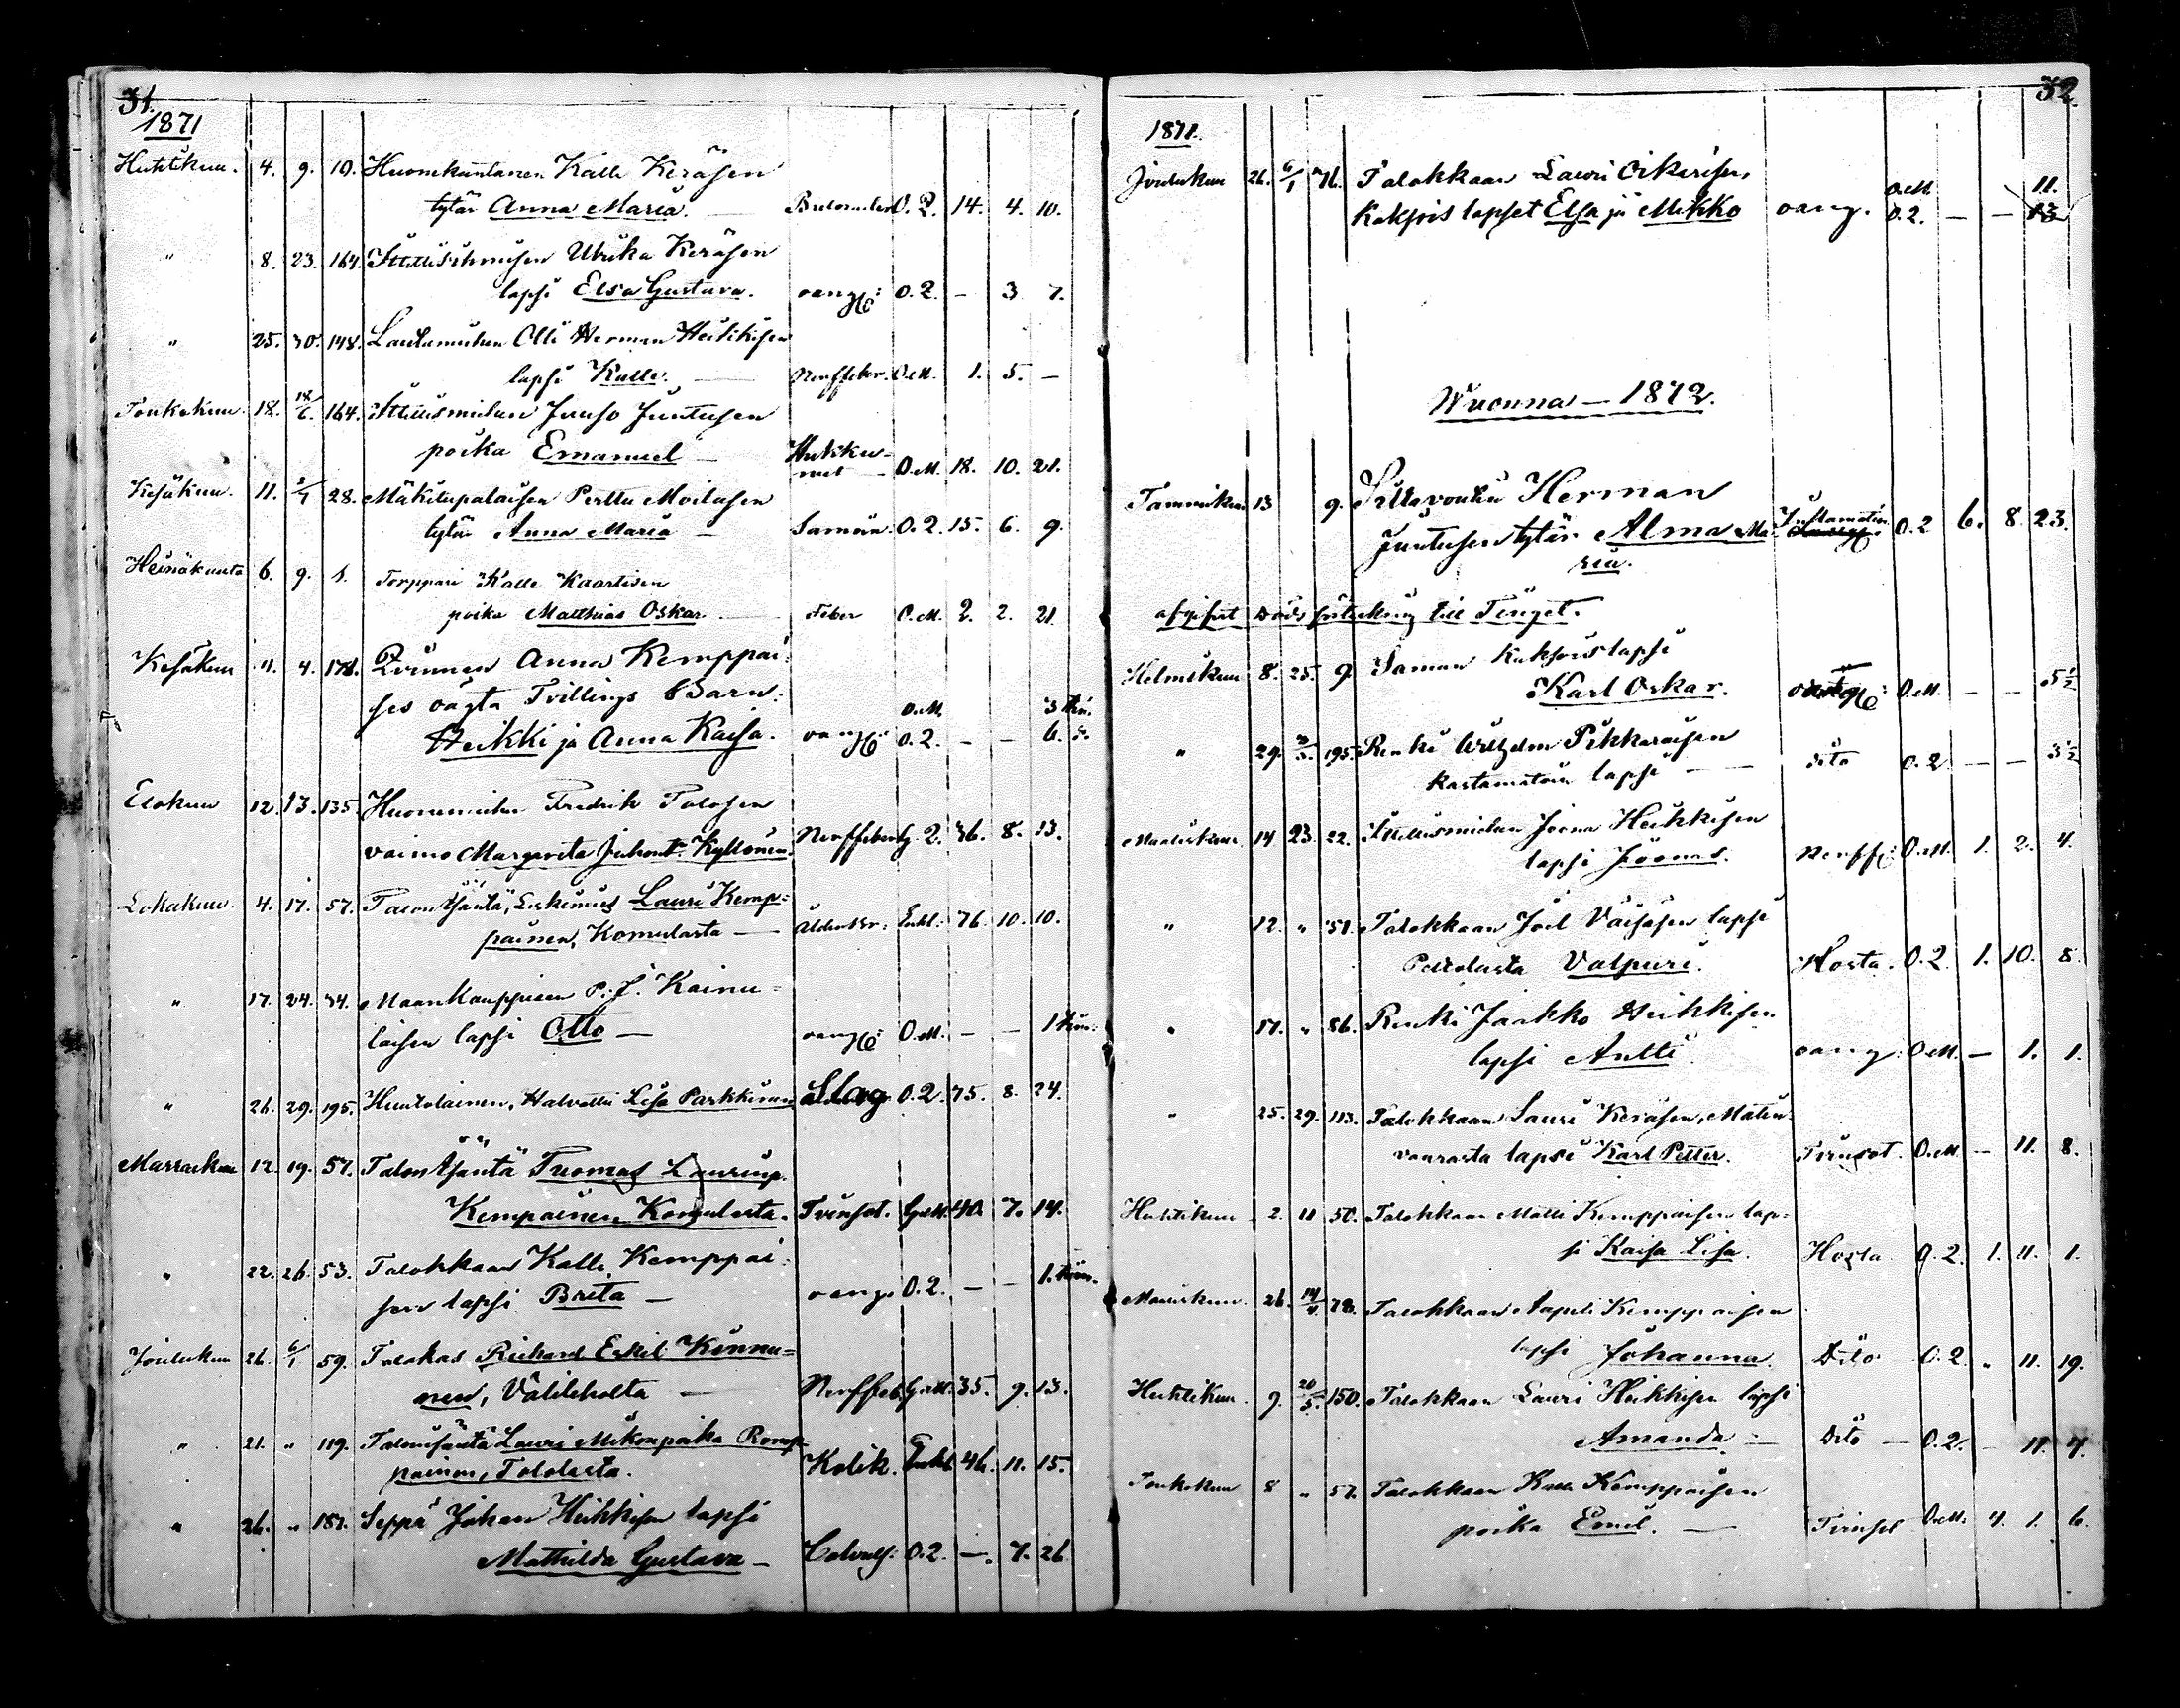 31.
1871
Huhtikuu. 4. 9. 10. Huonekuntanen Kalle Keräsen
tytär Anna Maria. — O. 2. 14. 4. 10.
" 8. 23. 164. Ulrika Keräsen
lapsi Elsa Gustava. oang: O. 2. — 3 7.
" 25. 30. 148. Lautamiehen Olli Herman Heikkisen
lapsi Kalle. — Nerffeber. O.M. 1. 5. —
Toukokuu. 18. 18/6. 164. Itellismiehen Juuso Juntusen
poika Emanuel — O.M. 18. 10. 21.
Kesäkuu. 11. 2/7 28. Mäkitupalaisen Perttu Moilasen
tytär Anna Maria — Samoin. O. 2. 15. 6. 9.
Heinäkuuta 6. 9. 1. Torppari Kalle Kaartisen
poika Matthias Oskar — Feber O.M. 2. 2. 21
Kesäkuu 11. 4. 178. Qvinnan Anna Kemppai-
ses oägta Tvillings Barn:
Heikki ja Anna Kaisa. oang: O.M. O. 2. — — 3 6.
Elokuu 12. 13. 135. Huonemiehen Fredrik Tolosen
vaimo Margareta Juhont. Kyllönen. Nerffeber G. 2. 36. 8. 13.
Lokakuu. 4. 17. 57. Talon Isäntä, Leskimies Lauri Kemp-
painen, Komulasta — Ålderskr. Enkl. 76. 10. 10.
" 17. 24. 34. Maankauppiaan P. J. Kainu-
laisen lapsi Otto — oang: O.M. — — 1
" 26. 29. 195. Huutolainen, Halvattu Lisa Parkkinen Slag O. 2. 75. 8. 24.
Marraskuu 12. 19. 57. Talon Isäntä Tuomas Laurinp.
Kempainen Komulasta. Tvinsot. G.M. 40. 7. 14.
" 22. 26. 53. Talokkaan Kalle Kemppai-
sen lapsi Brita — oang. O. 2. — — 1.
Joulukuu 26. 6/1 59. Talokas Richard Eskil Kinnu-
nen, Välileholta — Nerffeb. G.M. 35. 9. 13.
" 21. " 119. Talonisäntä Lauri Mikonpoika Romp-
painen, Tololasta. Kolik. Enkl. 46. 11. 15.
" 26. " 187. Seppä Johan Heikkisen lapsi
Mathilda Gustava — O. 2. — 7. 26
32.
1871.
Joulukuu 26. 6/1 76. Talokkaan Lauri Oikarisen,
Kaksois lapset Elsa ja Mikko oang. O.M. O. 2. — — 11.
Wuonna — 1872.
Tammikuu 13 9. Siltavouti Herman
Juntusen tytär Alma Ma- O. 2 6. 8. 23.
ria.
afgifvit Döds till Tinget.
Helmikuu 8. 25. 9. Saman Kaksoislapsi
Karl Oskar. O.M. — — 5 1/2
" 29. 195. Renki Wilhelm Pikkaraisen
kastamatoin lapsi — dito O. 2 — — 3 1/2
Maaliskuu 14 23. 22. Itellismiehen Joona Heikkisen
lapsi Joonas. Nerff: O.M. 1. 2. 4.
" 12. " 51. Talokkaan Joel Väisäsen lapsi
Peltolasta Valpuri. Hosta. O. 2. 1. 10. 8.
" 17. " 86. Renki Jaakko Heikkisen
lapsi Antti. oang: O.M. — 1. 1.
" 25. 29. 113. Talokkaan Lauri Keräsen, Matin-
vaarasta lapsi Karl Petter. Tvinsot. O.M. — 11. 8.
Huhtikuu 2. 11 50. Talokkaan Matti Kemppaisen lap-
si Kaisa Lisa. Hosta O. 2. 1. 11. 1.
Maaliskuu. 26. 14/4 78. Talokkaan Aapeli Kemppaisen
lapsi Johanna. Dito O. 2. " 11. 19.
Huhtikuu 9. 20/5. 150. Talokkaan Lauri Heikkisen lapsi
Amanda — Dito — O. 2. — 11. 4.
Toukokuu 8 " 57. Talokkaan Kalle Kemppaisen
poika Emil. — Tvinsot O.M. 4. 1. 6.